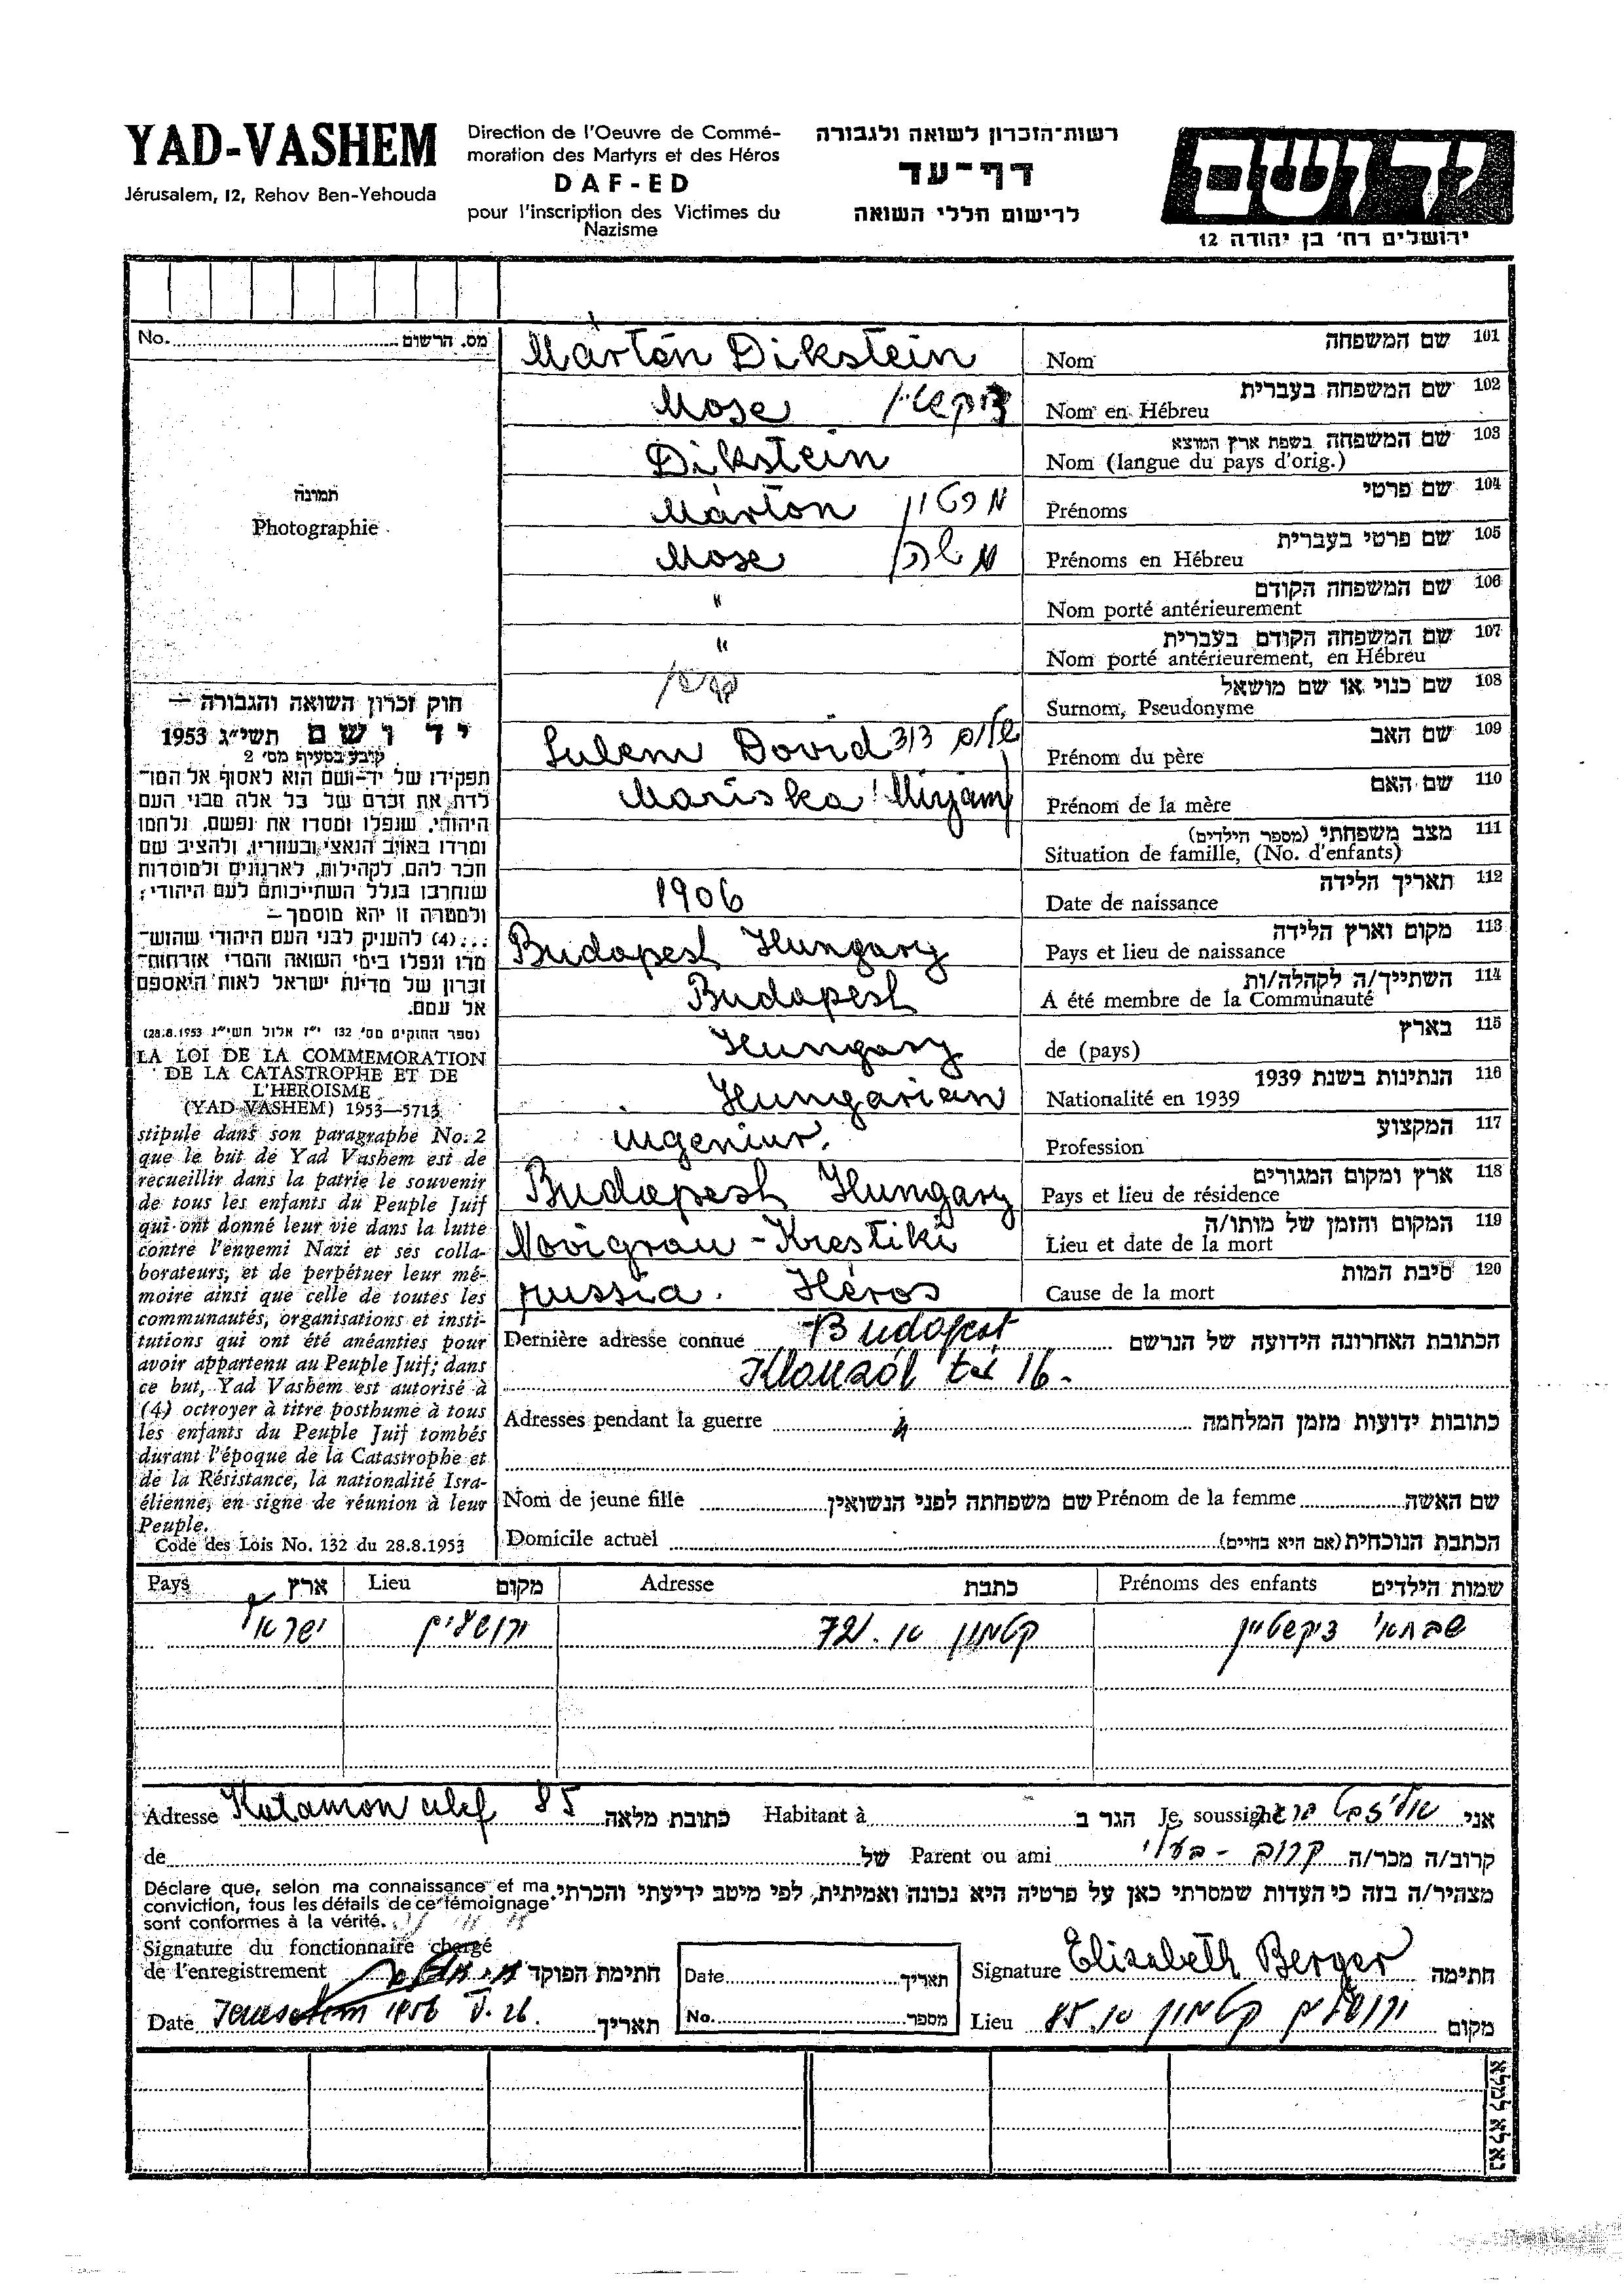 YAD-VASHEM
Jérusalem, 12, Rehov Ben-Yehouda
Direction de l'Oeuvre de Commé-
moration des Martyrs et des Héros
DAF-ED
pour l'inscription des Victimes du
Nazisme
רשות-הזכרון לשואה ולגבורה
דף-עד
לרישום חללי השואה
יד ושם
ירושלים רח' בן יהודה 12
No. מס. הרשום
תמונה
Photographie
חוק זכרון השואה והגבורה –
יד ושם תשי"ג 1953
קובע בסעיף מס' 2
תפקידו של יד-ושם הוא לאסוף אל המו-
לדת את זכרם של כל אלה מבני העם
היהודי, שנפלו ומסרו את נפשם, נלחמו
ומרדו באויב הנאצי ובעוזריו, ולהציב שם
וזכר להם, לקהילות, לארגונים ולמוסדות
שנחרבו בגלל השתייכותם לעם היהודי;
ולמטרה זו יהא מוסמך –
...(4) להעניק לבני העם היהודי שהוש-
מדו ונפלו בימי השואה והמרי אזרחות-
זכרון של מדינת ישראל לאות היאספם
אל עמם.
(ספר החוקים מס' 132 י"ז אלול תשי"ג 28.8.1953)
LA LOI DE LA COMMEMORATION
DE LA CATASTROPHE ET DE
L'HEROISME
(YAD VASHEM) 1953—5713
stipule dans son paragraphe No. 2
que le but de Yad Vashem est de
recueillir dans la patrie le souvenir
de tous les enfants du Peuple Juif
qui ont donné leur vie dans la lutte
contre l'ennemi Nazi et ses colla-
borateurs, et de perpétuer leur mé-
moire ainsi que celle de toutes les
communautés, organisations et insti-
tutions qui ont été anéanties pour
avoir appartenu au Peuple Juif; dans
ce but, Yad Vashem est autorisé à
(4) octroyer à titre posthume à tous
les enfants du Peuple Juif tombés
durant l'époque de la Catastrophe et
de la Résistance, la nationalité Isra-
élienne, en signe de réunion à leur
Peuple.
Code des Lois No. 132 du 28.8.1953
Mártón Dikstein Nom שם המשפחה 101
Mose דיקשטיין Nom en Hébreu שם המשפחה בעברית 102
Dikstein Nom (langue du pays d'orig.) שם המשפחה בשפת ארץ המוצא 103
Márton מרטון Prénoms שם פרטי 104
Mose משה Prénoms en Hébreu שם פרטי בעברית 105
" Nom porté antérieurement שם המשפחה הקודם 106
" Nom porté antérieurement, en Hébreu שם המשפחה הקודם בעברית 107
Surnom, Pseudonyme שם כנוי או שם מושאל 108
Sulem Dovid שלום דוד Prénom du père שם האב 109
Mariska Mirjam Prénom de la mère שם האם 110
Situation de famille, (No. d'enfants) מצב משפחתי (מספר הילדים) 111
1906 Date de naissance תאריך הלידה 112
Budapest Hungary Pays et lieu de naissance מקום וארץ הלידה 113
Budapest A été membre de la Communauté השתייך/ה לקהלה/ות 114
Hungary de (pays) בארץ 115
Hungarian Nationalité en 1939 הנתינות בשנת 1939 116
ingeniur. Profession המקצוע 117
Budapest Hungary Pays et lieu de résidence ארץ ומקום המגורים 118
Novigrau - Krestiki Lieu et date de la mort המקום והזמן של מותו/ה 119
russia. Héros Cause de la mort סיבת המות 120
Dernière adresse connue Budapest הכתובת האחרונה הידועה של הנרשם
Klauzál tér 16.
Adresses pendant la guerre " כתובות ידועות מזמן המלחמה
Nom de jeune fille שם משפחתה לפני הנשואין Prénom de la femme שם האשה
Domicile actuel הכתבת הנוכחית (אם היא בחיים)
Pays ארץ Lieu מקום Adresse כתבת Prénoms des enfants שמות הילדים
ישראל ירושלים קטמון א. 72 שבתאי דיקשטיין
Adresse Katamon alef 85 כתובת מלאה Habitant à הגר ב Je, soussigné אליזבט ברגר אני
de של Parent ou ami קרוב - בעלי קרוב/ה מכר/ה
Déclare que, selon ma connaissance et ma
conviction, tous les détails de ce témoignage
sont conformes à la vérité.
מצהיר/ה בזה כי העדות שמסרתי כאן על פרטיה היא נכונה ואמיתית, לפי מיטב ידיעתי והכרתי.
Signature du fonctionnaire chargé
de l'enregistrement חתימת הפוקד
Date Jerusalem 1956 V. 26. תאריך
Date תאריך
No. מספר
Signature Elisabeth Berger חתימה
Lieu ירושלים קטמון א. 85 מקום
נא לא למלא